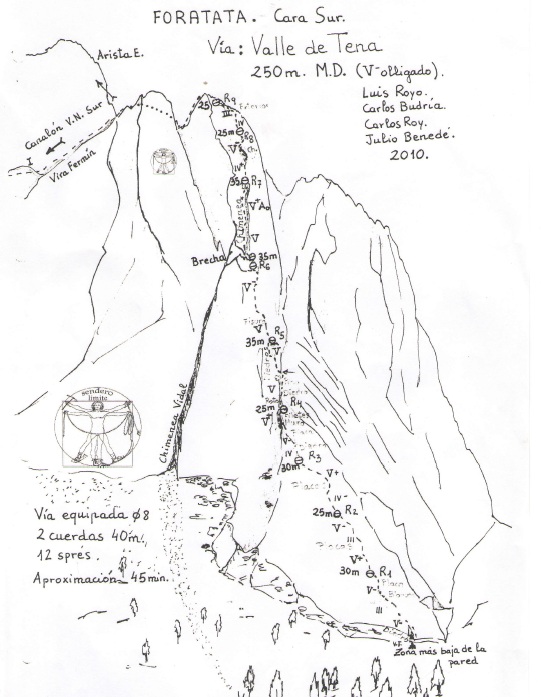 FORATATA. Cara Sur.
Vía: Valle de Tena
250m. M.D. (V- obligado).
Luis Royo.
Carlos Budría.
Carlos Roy.
Julio Benedé.
2010.
Arista E.
Canalón V.N. Sur
I
Vira Fermín
25 R9
III
IV
25m R8
V
IV
35m R7
V+ A0
Chimenea
V
Brecha
35m
R6
V
V
R5
35m
V
V
R4
25m
V+
V-
R3
30m
V+
Placa
IV-
R2
25m
V-
III
Placa
V+
30m R1
Placa
Blanca
V-
III
V-
Zona más baja de la
pared
Chimenea Vidal
sendero
limite
Vía equipada ø8
2 cuerdas 40m.,
12 sprés.
Aproximación 45 min.